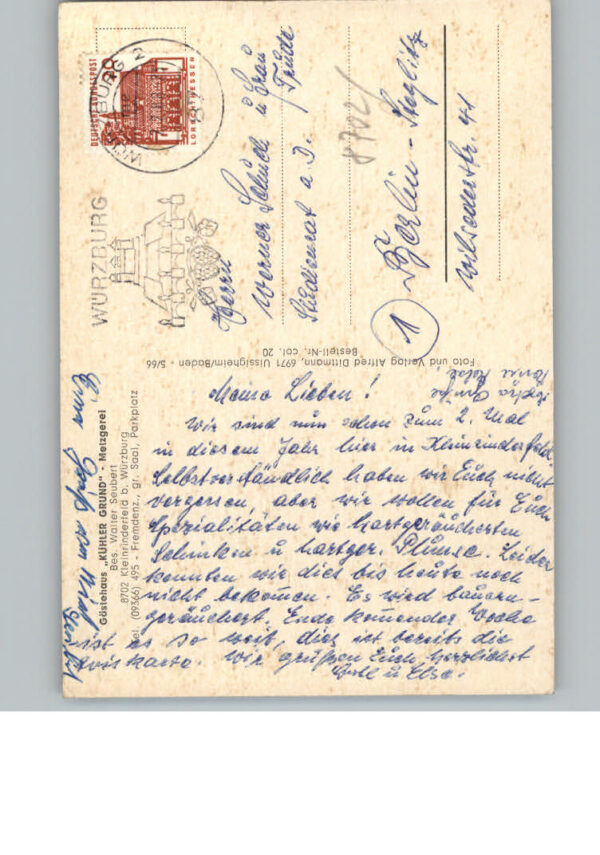 Gästehaus „KÜHLER GRUND" - Metzgerei
Bes. Walter Seubert
8702 Kleinrinderfeld b. Würzburg
Tel. (09366) 495 - Fremdenz., gr. Saal, Parkplatz
Meine Lieben!
Wir sind nun schon zum 2. Mal
in diesem Jahr hier in Kleinrinderfeld.
Selbstverständlich haben wir Euch nicht
vergessen, aber wir wollen für Euch
Spezialitäten wie hartgeräucherten
Schinken u. hartger. Plunse. Leider
konnten wir dies bis heute noch
nicht bekommen. Es wird bauern-
geräuchert. Ende kommender Woche
ist es so weit, dies ist bereits die
Aviskarte. Wir grüßen Euch herzlichst
u. Elsa.
Foto und Verlag Alfred Dittmann, 6971 Uissigheim/Baden - 5/66
Bestell-Nr. col. 20
WÜRZBURG
WÜRZBURG 2
87
DEUTSCHE BUNDESPOST
20
LORSCH/HESSEN
Herrn
Werner u. Frau
Trude
Studienrat a. D.
8702
1 Berlin-Steglitz
41